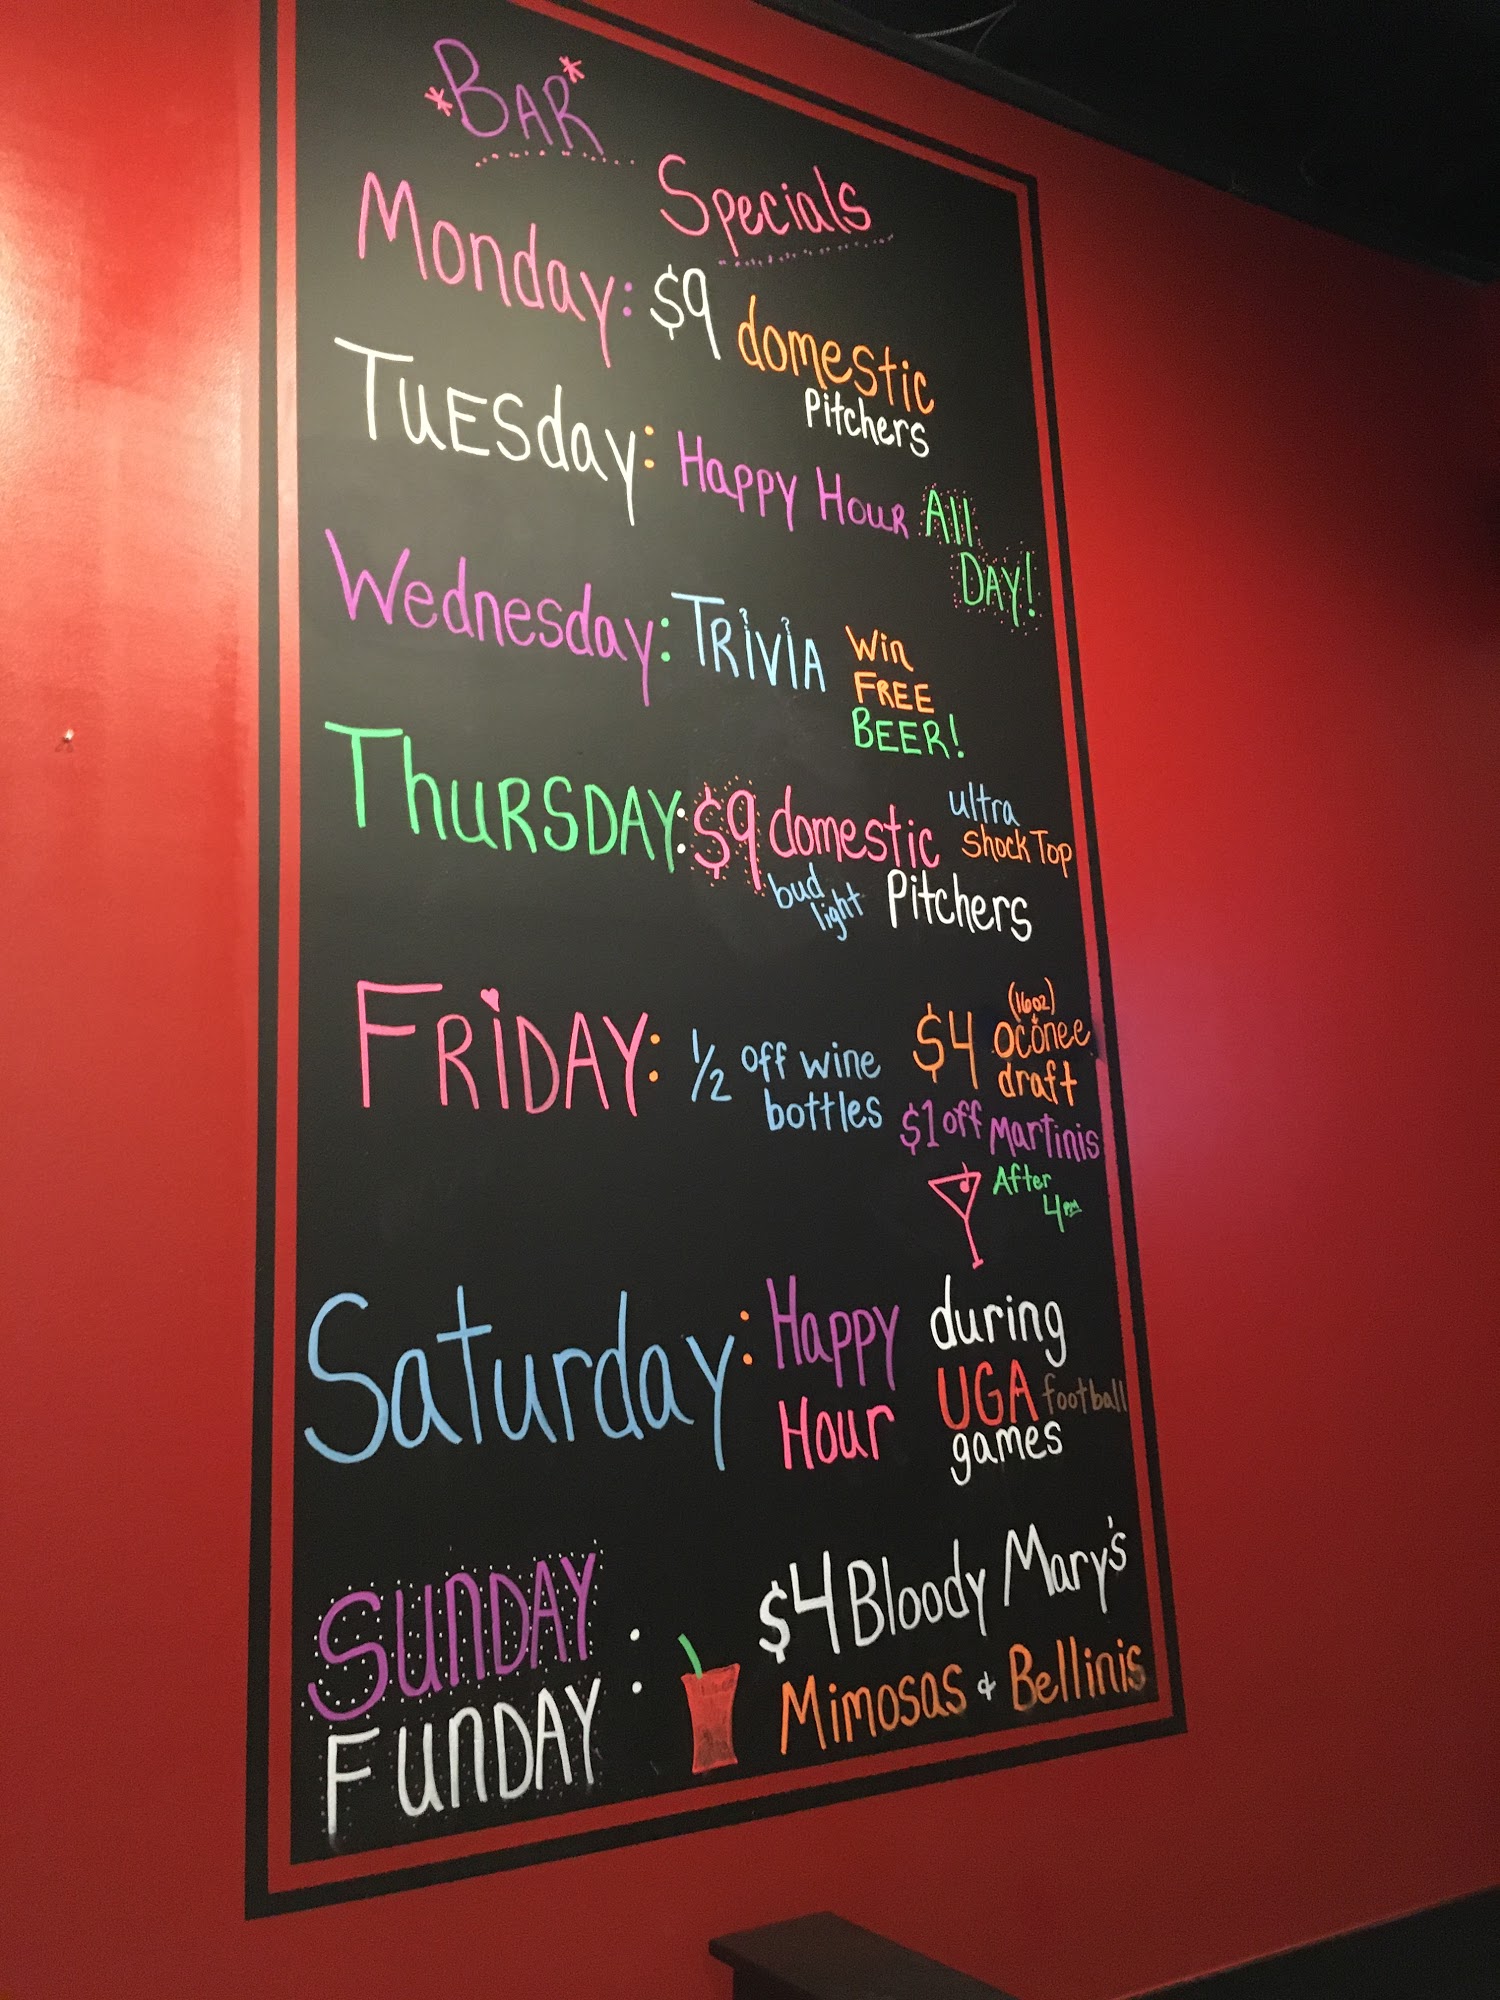 *BAR*
Specials
Monday: $9 domestic
Pitchers
TUESday: Happy Hour All
DAY!
Wednesday: TRiViA Win
FREE
BEER!
ThURSDAY: $9 domestic ultra
Shock Top
bud light Pitchers
FRiDAY: 1/2 off wine bottles
$4 (16oz) oconee draft
$1 off Martinis
After 4pm
Saturday: Happy Hour
during
UGA football
games
SUNDAY
FUNDAY :
$4 Bloody Mary's
Mimosas & Bellinis